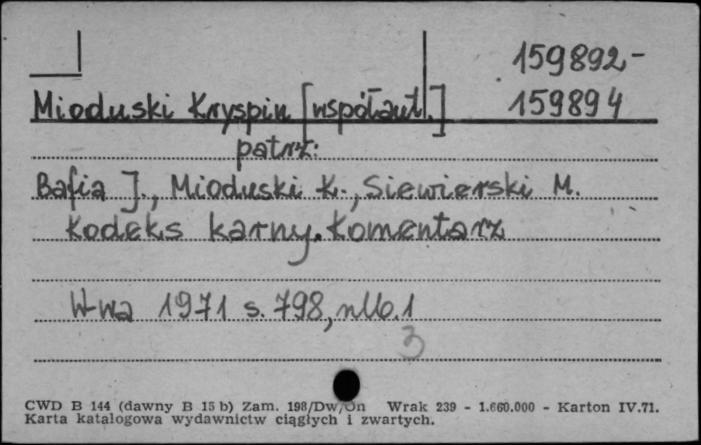 159892-
Mioduski Kryspin [współaut.] 159894
patrz:
Bafia J., Mioduski K., Siewierski M.
Kodeks karny. Komentarz
W-wa 1971 s. 798, nlb. 1
3
CWD B 144 (dawny B 15 b) Zam. 198/Dw/On Wrak 239 - 1.660.000 - Karton IV.71.
Karta katalogowa wydawnictw ciągłych i zwartych.